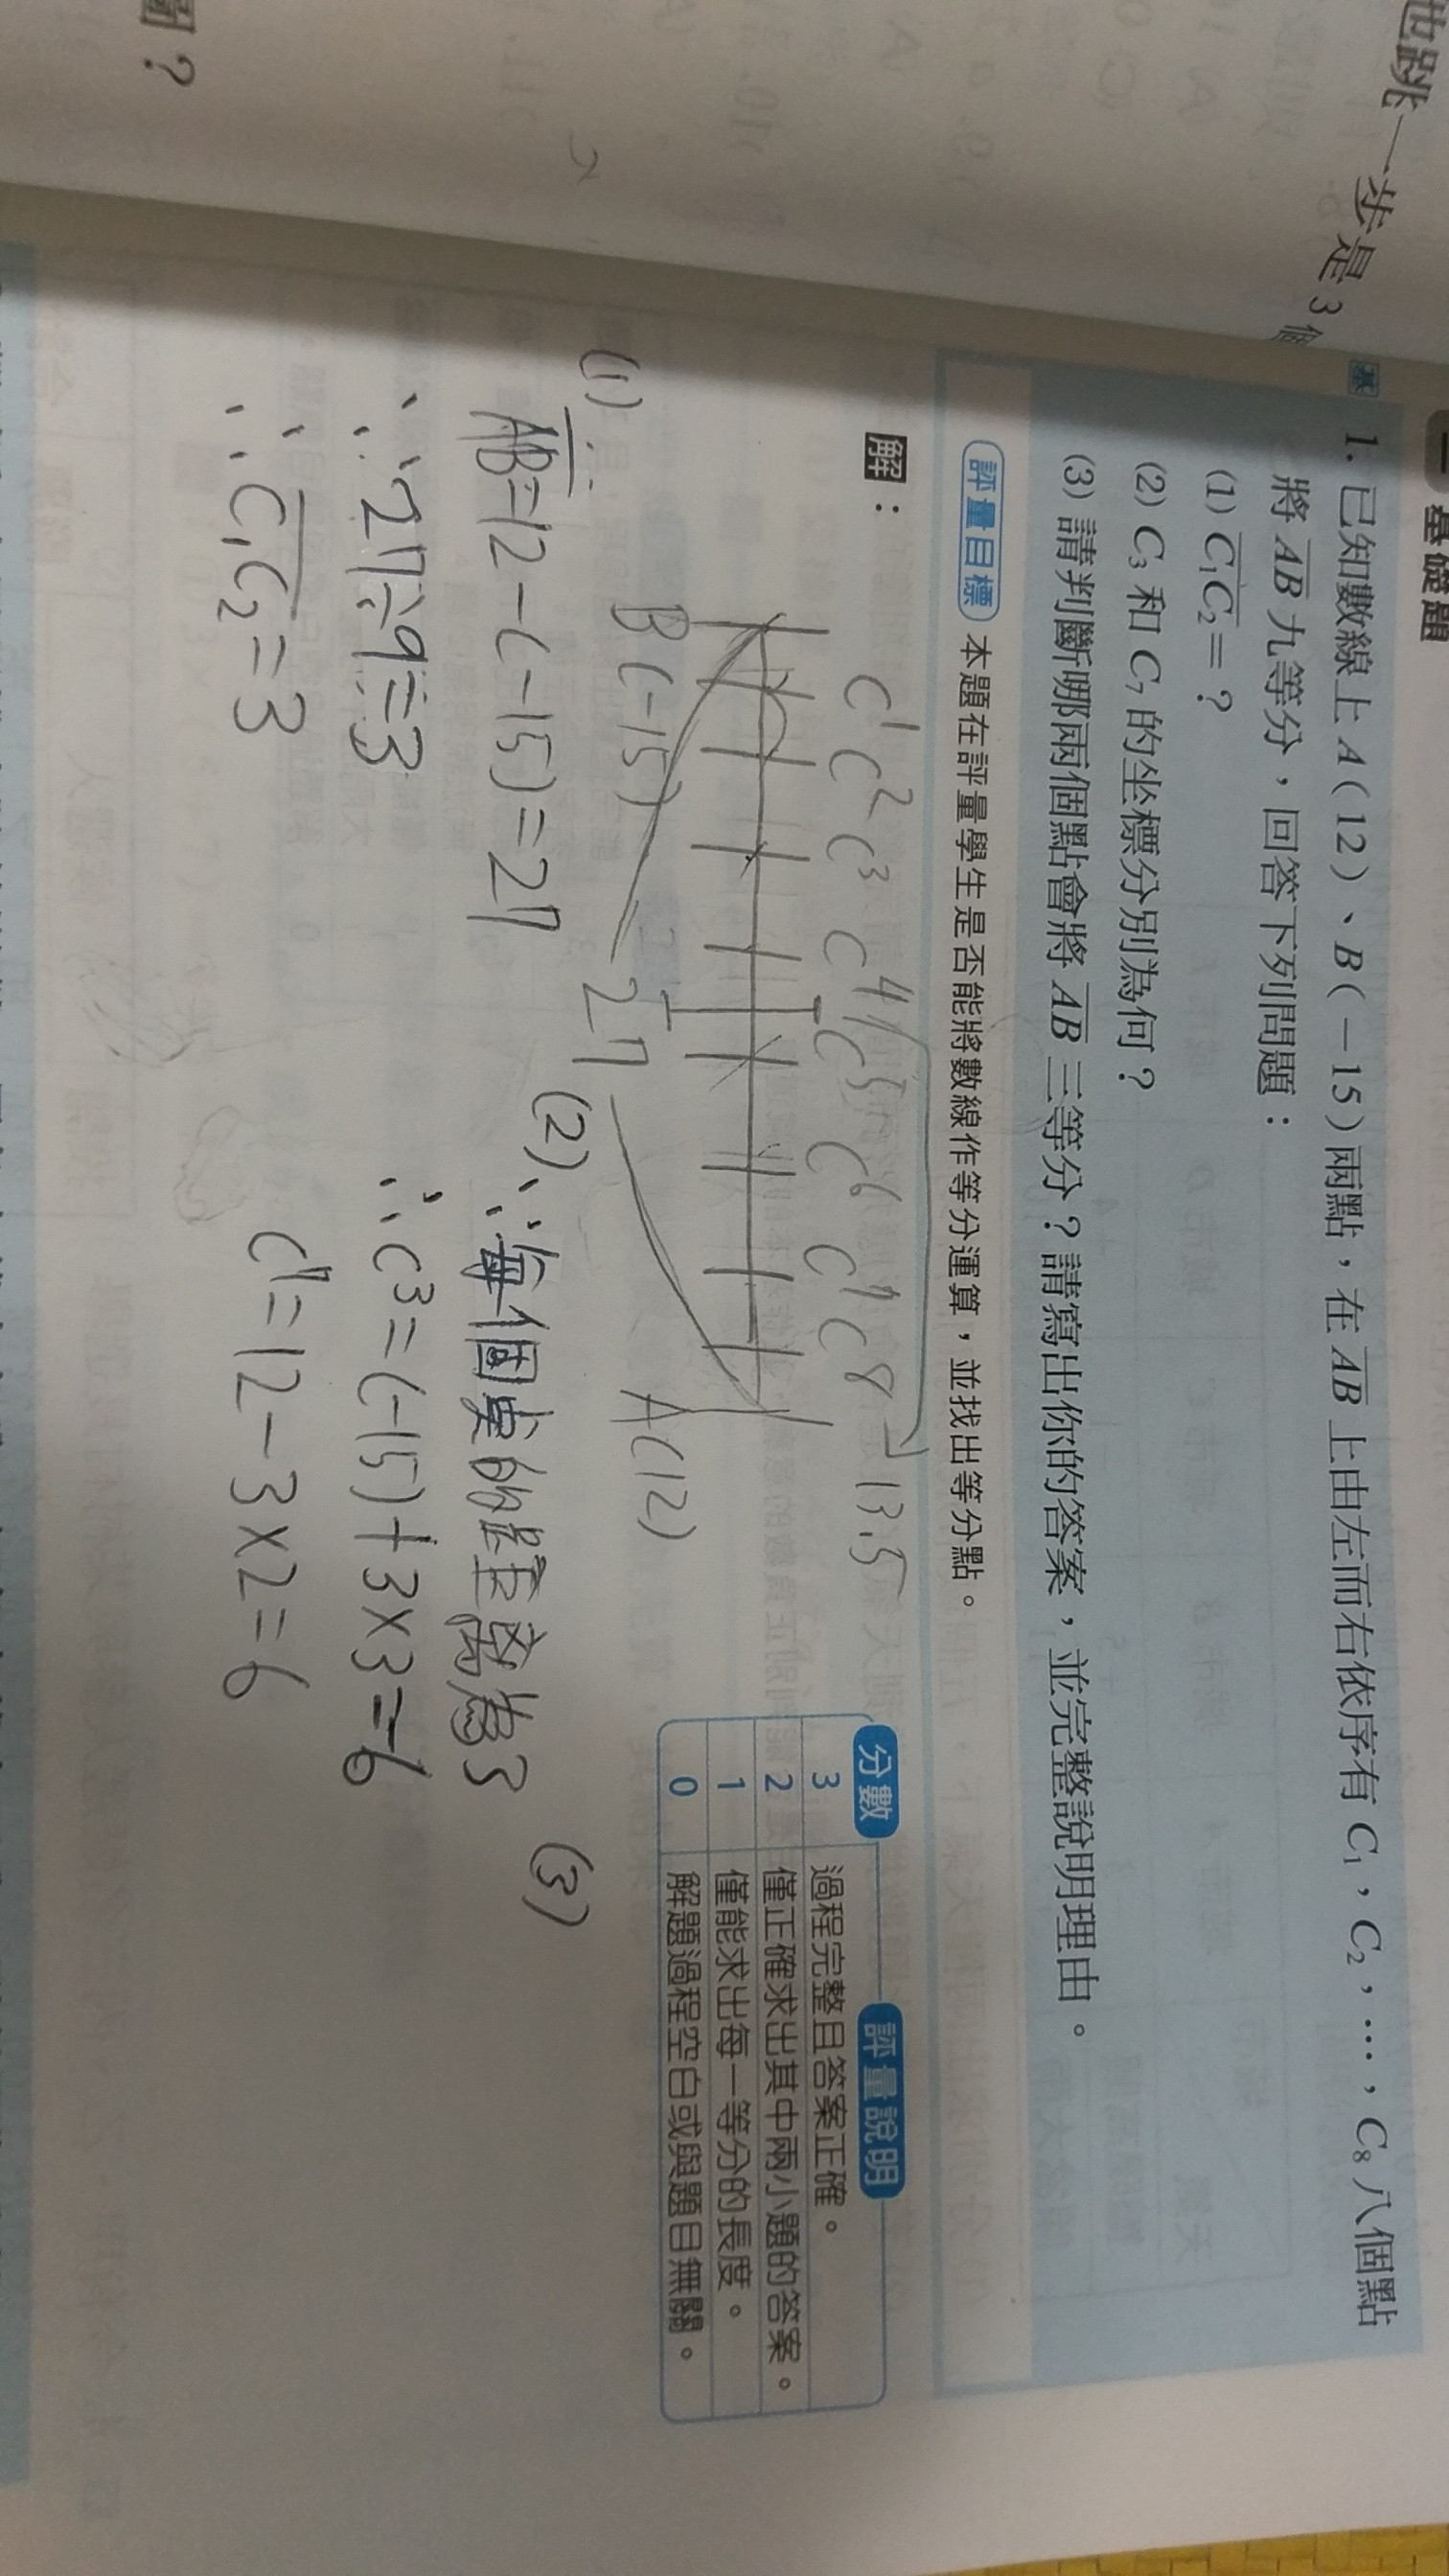 也跳一步是3個
圍？
基礎題
基 1. 已知數線上 A(12)、B(−15)兩點，在 AB 上由左而右依序有 C₁，C₂，…，C₈ 八個點
將 AB 九等分，回答下列問題：
(1) C₁C₂＝？
(2) C₃ 和 C₇ 的坐標分別為何？
(3) 請判斷哪兩個點會將 AB 三等分？請寫出你的答案，並完整說明理由。
評量目標 本題在評量學生是否能將數線作等分運算，並找出等分點。
解：
分數 評量說明
3 過程完整且答案正確。
2 僅正確求出其中兩小題的答案。
1 僅能求出每一等分的長度。
0 解題過程空白或與題目無關。
C¹ C² C³ C⁴ C⁵ C⁶ C⁷ C⁸ 13.5
B(-15) A(12)
27
(1)
AB=12-(-15)=27
∵27÷9=3
∴C₁C₂=3
(2)∵每個點的距離為3
∴C³=(-15)+3×3=-6
C⁷=12-3×2=6
(3)